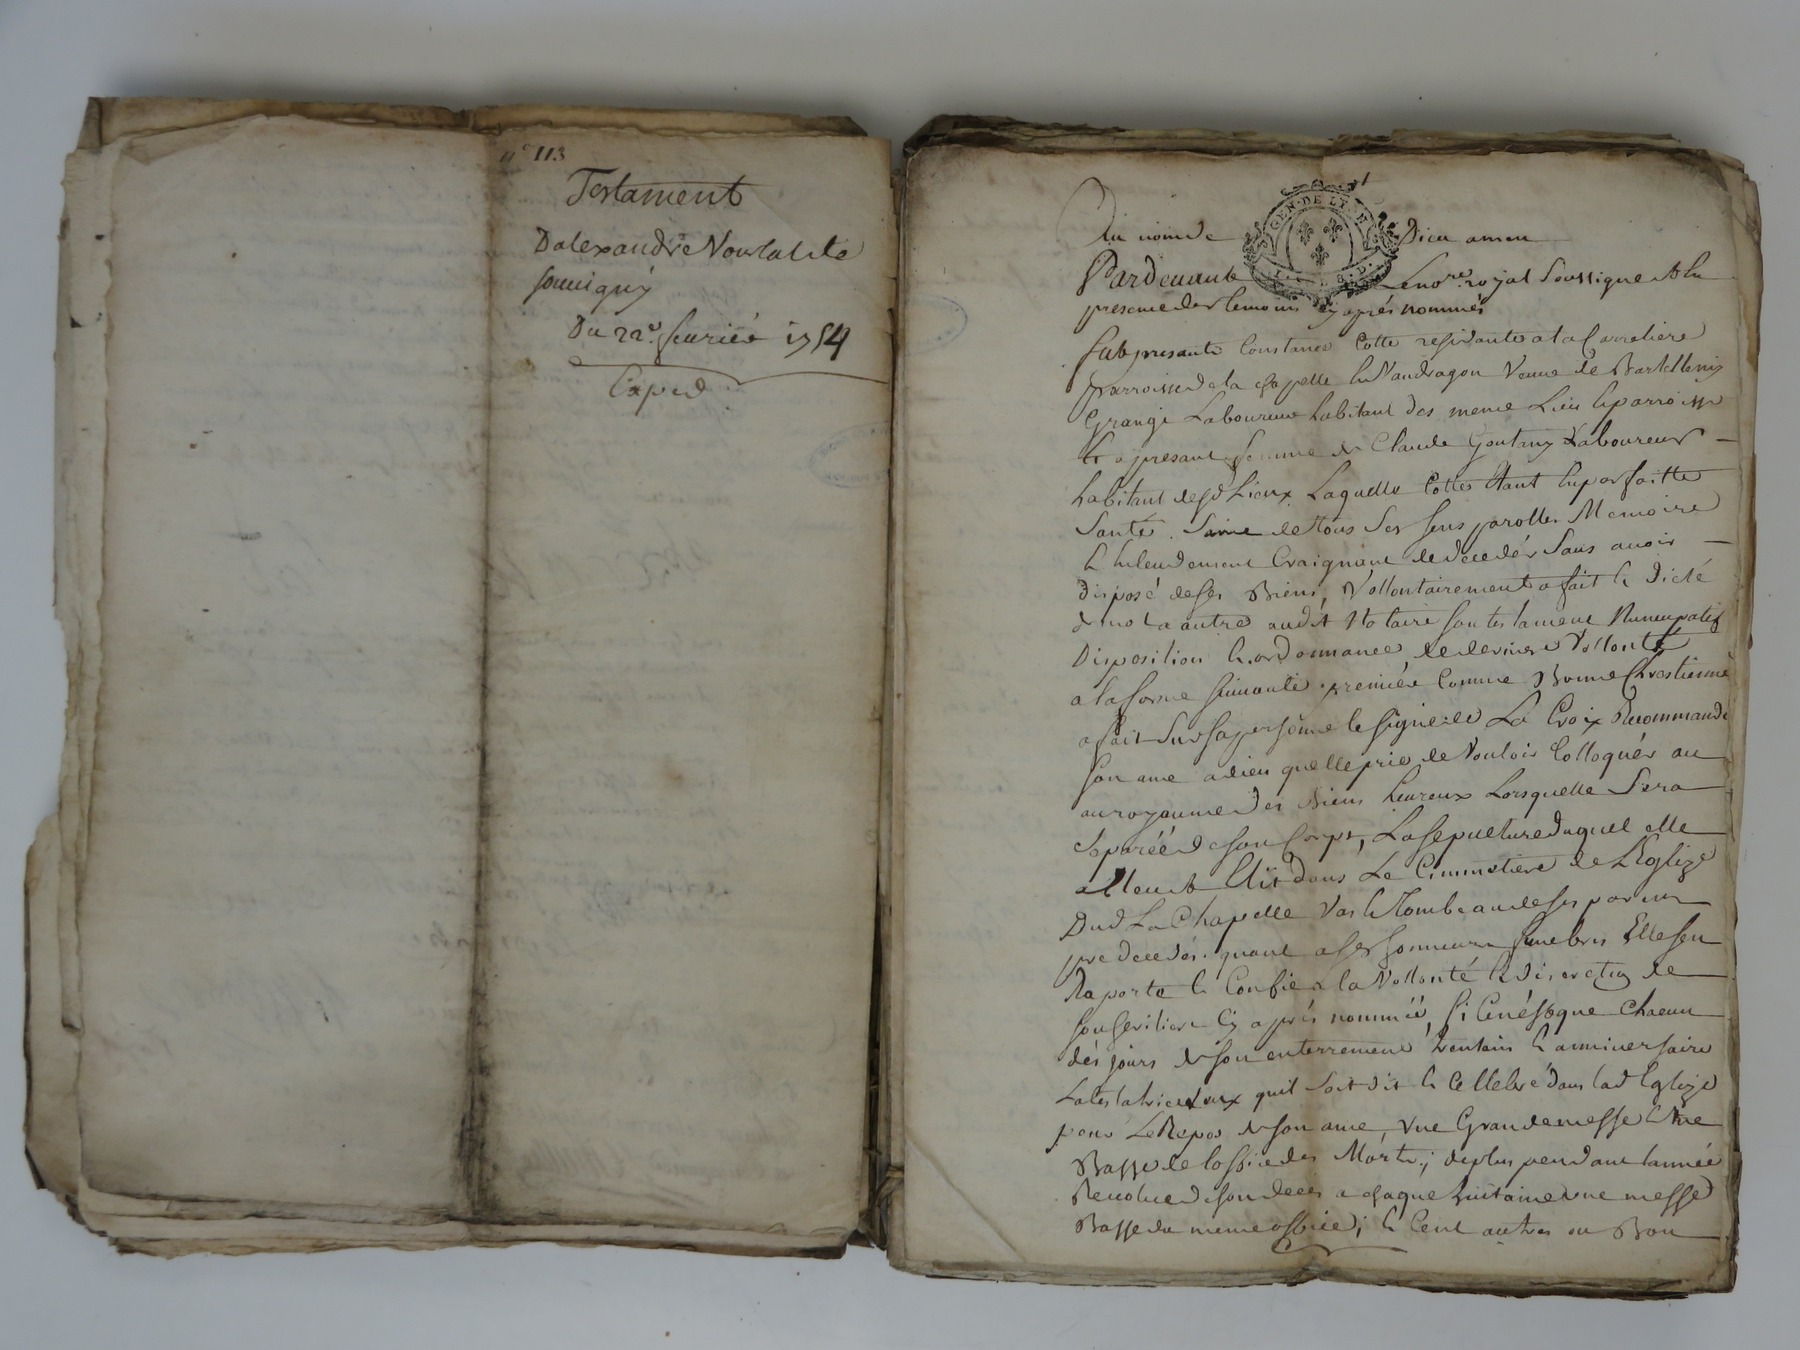 n° 113
Testament
Dalexandre
Du 22e feurier 1754
Exped
GEN. DE LYON
Au nom de Dieu amen
Pardeuant Le no.re royal Soussigne & En
presence des temoins cy aprés nommés
fut presante Constance Cotte residante a la
parroisse de la chapelle En Vaudragon Veuue de Barthellemy
Grange Laboureur habitant des meme Lieu & parroisse
& a presant femme de Claude Laboureur
habitant desd Lieux Laquelle Cotte Etant En parfaitte
Santé. Saine de tous Ses Sens parolles Memoire
& Entendement Craignant de decedér Sans auoir
disposé de ses Biens, Vollontairement a fait & Dicté
de mot a autre audit Notaire son testament Nuncupatif
Disposition & ordonnance de derniere Vollonté
a la forme suiuante. premiere Comme Bonne Chrestienne
a fait Sur sa personne le signe de La Croix Recommandé
son ame a dieu quelle prie de Vouloir Colloquér au
au royaume des Biens heureux Lorsquelle Sera
Separéé de son Corps, La Sepulture duquel elle
a Elleu & Elit dans Le Cimmetiere de LEglize
Dud La Chapelle Vas & Tombeau de ses parens
predecedés. quant a ses honneurs funebres Elle sen
Raporte & Confie a la Vollonté & discretion de
son heritiere Cy aprés nommée, si Ce nést que Chacun
dés jours de son enterrement trentain & anniuersaire
La testatrice Veux quil Soit dit & Cellebré dans lad Eglize
pour Le Repos de son ame, Vne Grande messe & Vne
Basse de lossice des Morts; de plus pendant lannée
Reuolue de son deces a chaque huitaine vne messe
Basse du meme office; & Cent autres ou Bon